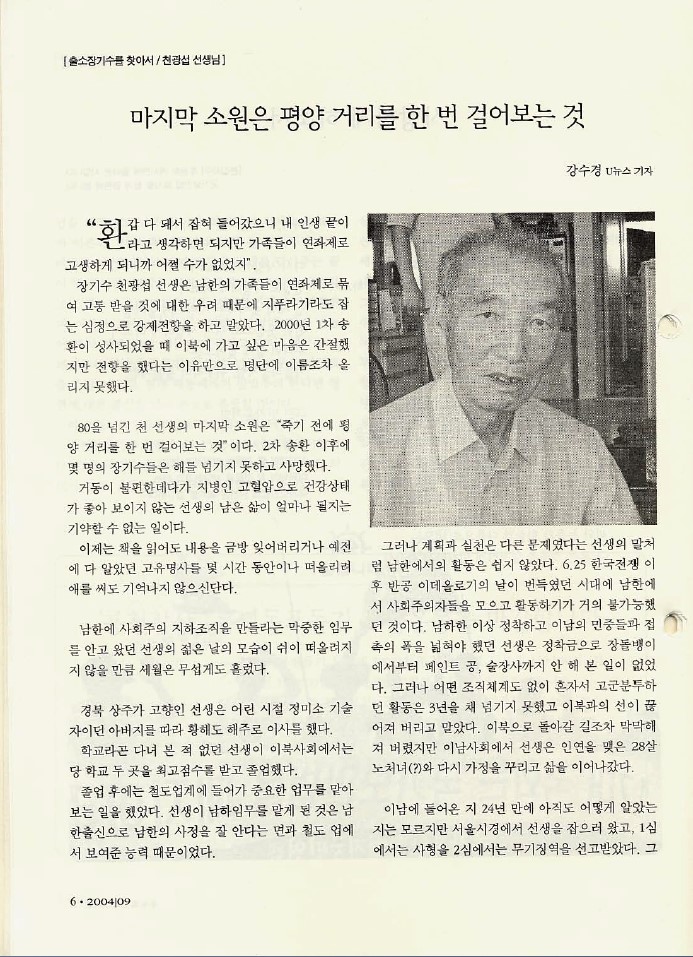 [ 출소장기수를 찾아서 / 천광섭 선생님 ]
마지막 소원은 평양 거리를 한 번 걸어보는 것
강수경 U뉴스 기자
“환갑 다 돼서 잡혀 들어갔으니 내 인생 끝이
라고 생각하면 되지만 가족들이 연좌제로
고생하게 되니까 어쩔 수가 없었지”.
장기수 천광섭 선생은 남한의 가족들이 연좌제로 묶
여 고통 받을 것에 대한 우려 때문에 지푸라기라도 잡
는 심정으로 강제전향을 하고 말았다. 2000년 1차 송
환이 성사되었을 때 이북에 가고 싶은 마음은 간절했
지만 전향을 했다는 이유만으로 명단에 이름조차 올
리지 못했다.
80을 넘긴 천 선생의 마지막 소원은 “죽기 전에 평
양 거리를 한 번 걸어보는 것”이다. 2차 송환 이후에
몇 명의 장기수들은 해를 넘기지 못하고 사망했다.
거동이 불편한데다가 지병인 고혈압으로 건강상태
가 좋아 보이지 않는 선생의 남은 삶이 얼마나 될지는
기약할 수 없는 일이다.
이제는 책을 읽어도 내용을 금방 잊어버리거나 예전
에 다 알았던 고유명사를 몇 시간 동안이나 떠올리려
애를 써도 기억나지 않으신단다.
남한에 사회주의 지하조직을 만들라는 막중한 임무
를 안고 왔던 선생의 젊은 날의 모습이 쉬이 떠올려지
지 않을 만큼 세월은 무섭게도 흘렀다.
경북 상주가 고향인 선생은 어린 시절 정미소 기술
자이던 아버지를 따라 황해도 해주로 이사를 했다.
학교라곤 다녀 본 적 없던 선생이 이북사회에서는
당 학교 두 곳을 최고점수를 받고 졸업했다.
졸업 후에는 철도업계에 들어가 중요한 업무를 맡아
보는 일을 했었다. 선생이 남하임무를 맡게 된 것은 남
한출신으로 남한의 사정을 잘 안다는 면과 철도 업에
서 보여준 능력 때문이었다.
그러나 계획과 실천은 다른 문제였다는 선생의 말처
럼 남한에서의 활동은 쉽지 않았다. 6.25 한국전쟁 이
후 반공 이데올로기의 날이 번득였던 시대에 남한에
서 사회주의자들을 모으고 활동하기가 거의 불가능했
던 것이다. 남하한 이상 정착하고 이남의 민중들과 접
촉의 폭을 넓혀야 했던 선생은 정착금으로 장돌뱅이
에서부터 페인트 공, 술장사까지 안 해 본 일이 없었
다. 그러나 어떤 조직체계도 없이 혼자서 고군분투하
던 활동은 3년을 채 넘기지 못했고 이북과의 선이 끊
어져 버리고 말았다. 이북으로 돌아갈 길조차 막막해
져 버렸지만 이남사회에서 선생은 인연을 맺은 28살
노처녀(?)와 다시 가정을 꾸리고 삶을 이어나갔다.
이남에 들어온 지 24년 만에 아직도 어떻게 알았는
지는 모르지만 서울시경에서 선생을 잡으러 왔고, 1심
에서는 사형을 2심에서는 무기징역을 선고받았다. 그
6 • 2004|09